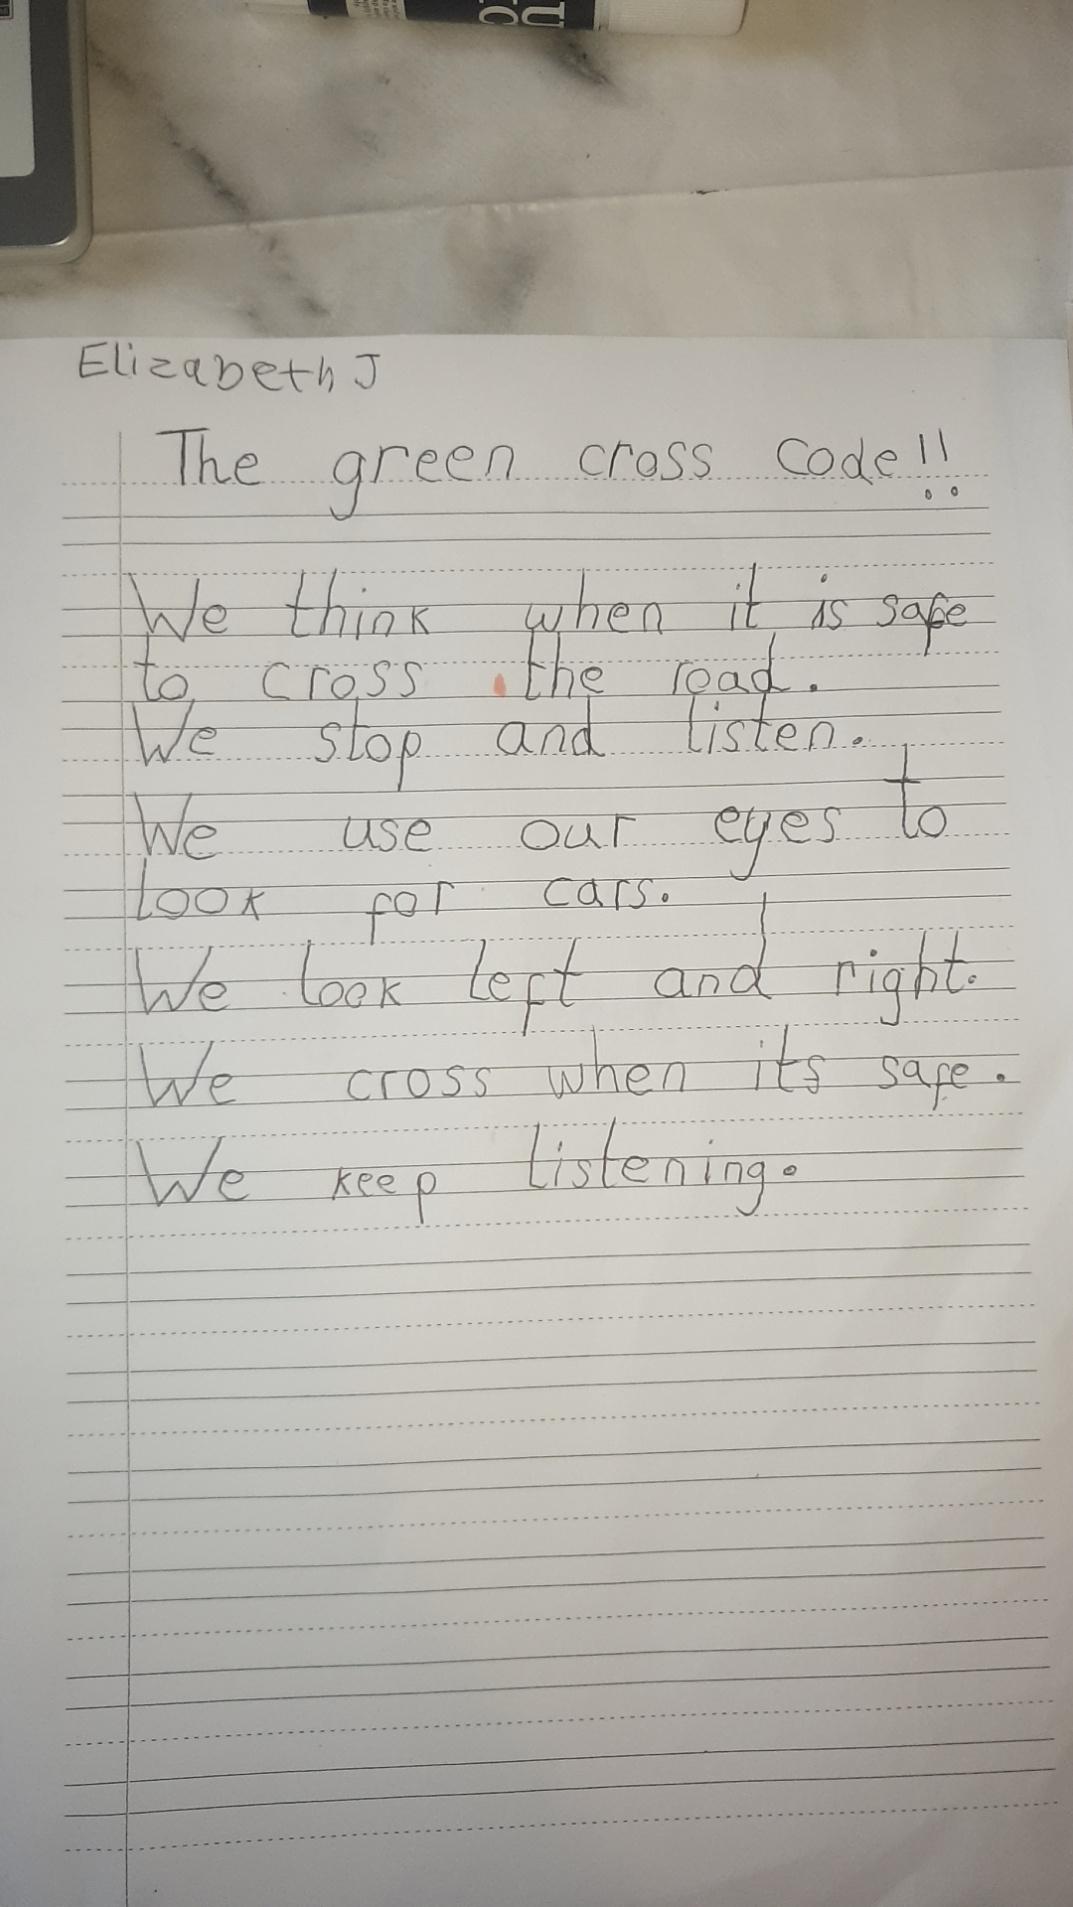 Elizabeth J
The green cross code!!
We think when it is safe
to cross the road.
We stop and listen.
We use our eyes to
look for cars.
We look left and right.
We cross when its safe.
We keep listening.